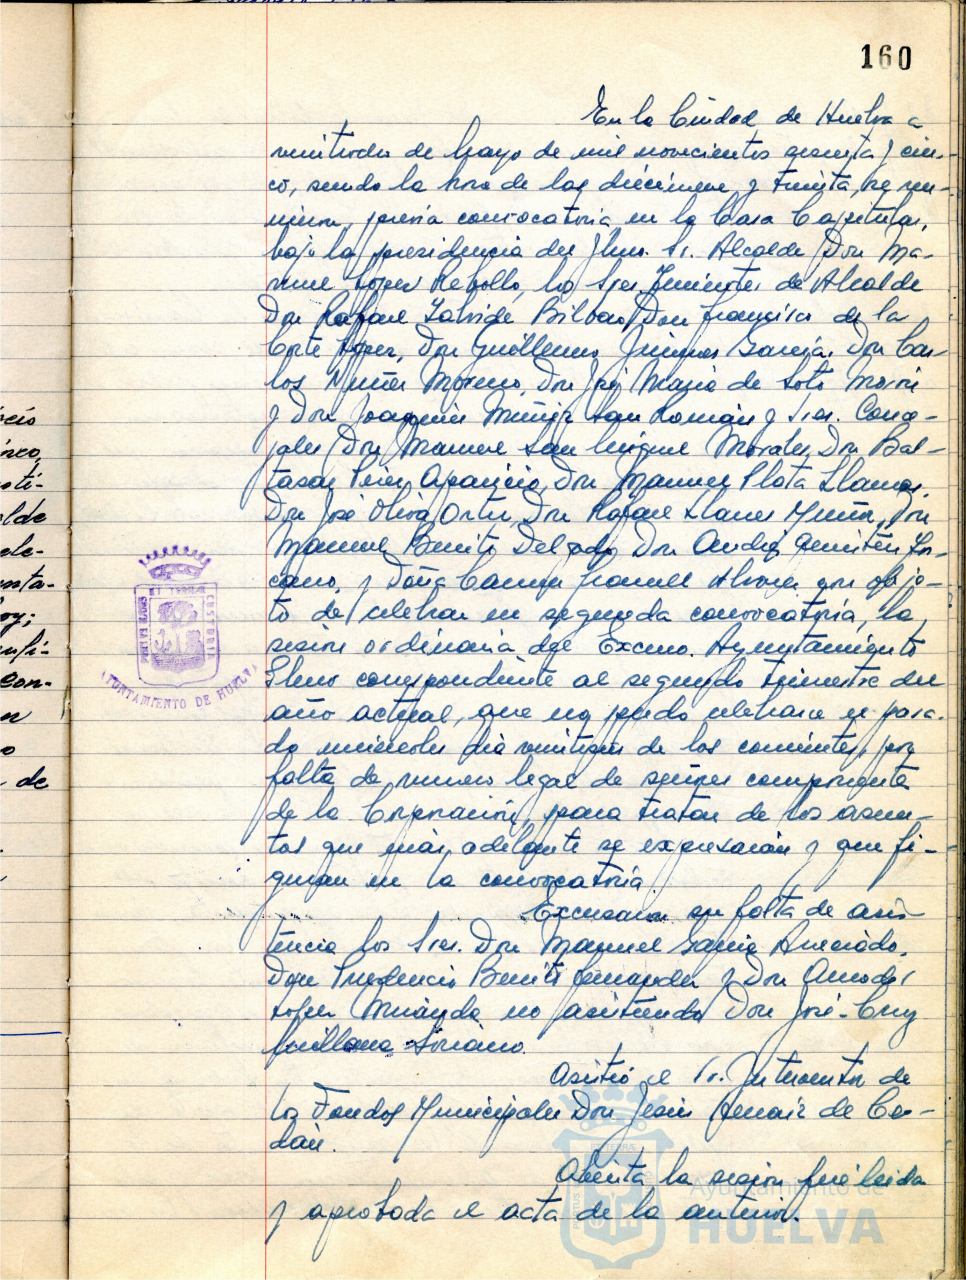 160
En la Ciudad de Huelva a
veintiocho de Mayo de mil novecientos sesenta y cin-
co, siendo la hora de las diecinueve y treinta, se reu-
nieron, previa convocatoria en la Casa Capitular,
bajo la presidencia del Ilmo. Sr. Alcalde Don Ma-
nuel López Rebollo, los Sres. Tenientes de Alcalde
Don Rafael Bilbao, Don Francisco de la
Corte López, Don Guillermo Jiménez García, Don Car-
los Núñez Moreno, Don José María de Soto
y Don Joaquín Muñiz San Román y Sres. Conce-
jales Don Manuel San Miguel Morales, Don Bal-
tasar Pérez Aparicio, Don Manuel Plata Llamas,
Don José Oliva Ortiz, Don Rafael Llanes Don
Manuel Benito Delgado, Don Andrés
y Doña Carmen con obje-
to de celebrar en segunda convocatoria, la
sesión ordinaria del Excmo. Ayuntamiento
Pleno correspondiente al segundo trimestre del
año actual, que no pudo celebrarse el pasa-
do miércoles día veintiseis de los corrientes, por
falta de número legal de señores componentes
de la Corporación, para tratar de los asun-
tos que más adelante se expresarán y que fi-
guran en la convocatoria.
Excusaron su falta de asis-
tencia los Sres. Don Manuel García
Don Prudencio Benito Fernández y Don Amador
López Miranda no asistiendo Don José-Cruz
Soriano.
Asistió el Sr. Interventor de
los Fondos Municipales Don Jesús de Ce-
Abierta la sesión fué leida
y aprobada el acta de la anterior.
AYUNTAMIENTO DE HUELVA
Ayuntamiento de
HUELVA